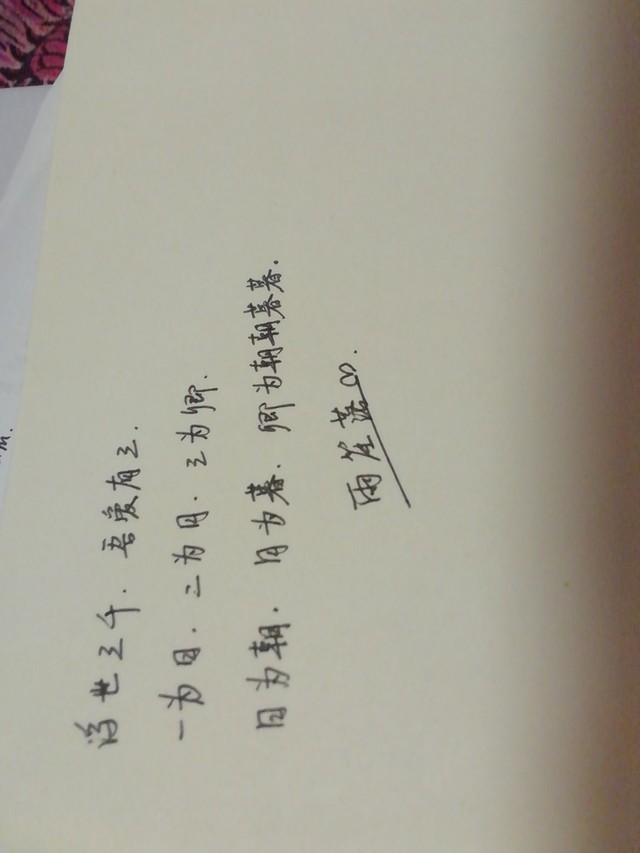 浮世三千.吾爱有三.
一为日.二为月.三为卿.
日为朝.月为暮.卿为朝朝暮暮.
雨笙落